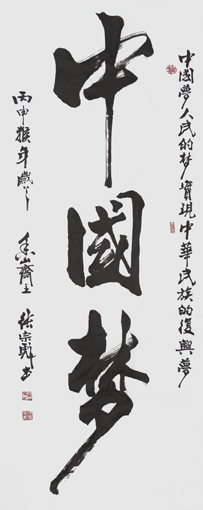 中國夢人民的梦實現中華民族的復興夢
中國梦
丙申猴年歲
山齋主 張宗彪书